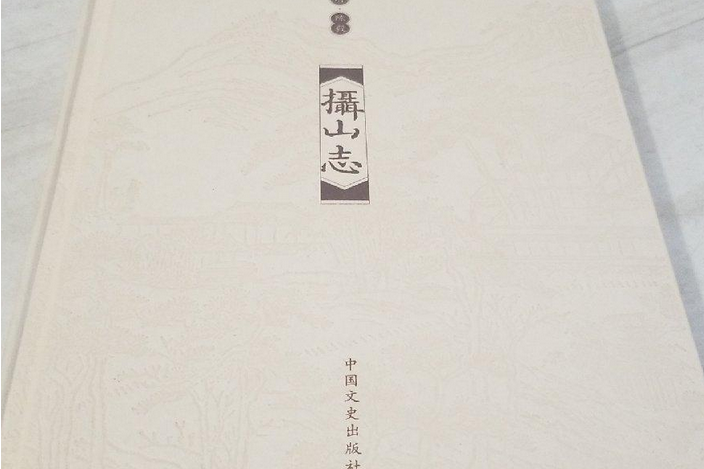 陈毅
攝山志
中国文史出版社